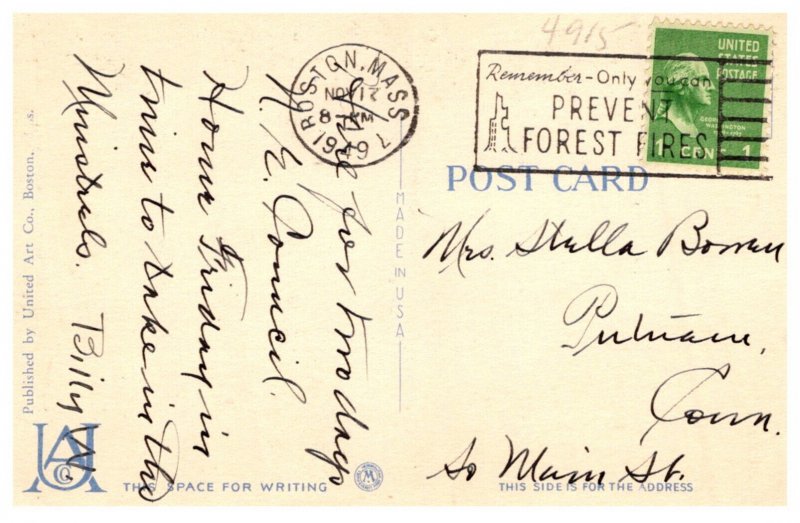 4915
BOSTON, MASS.
NOV 17
8 - PM
1949
Remember - Only you can
PREVENT
FOREST FIRES
UNITED
STATES
POSTAGE
GEORGE
WASHINGTON
1 CENT 1
POST CARD
Here for two days
N. E. Council.
Home Friday in
time to take in the
Minstrels. Billy W.
Mrs. Stella Bowen
Putnam,
Conn.
So Main St.
MADE IN USA
Published by United Art Co., Boston, s.
UA
Co
M
THIS SPACE FOR WRITING
THIS SIDE IS FOR THE ADDRESS